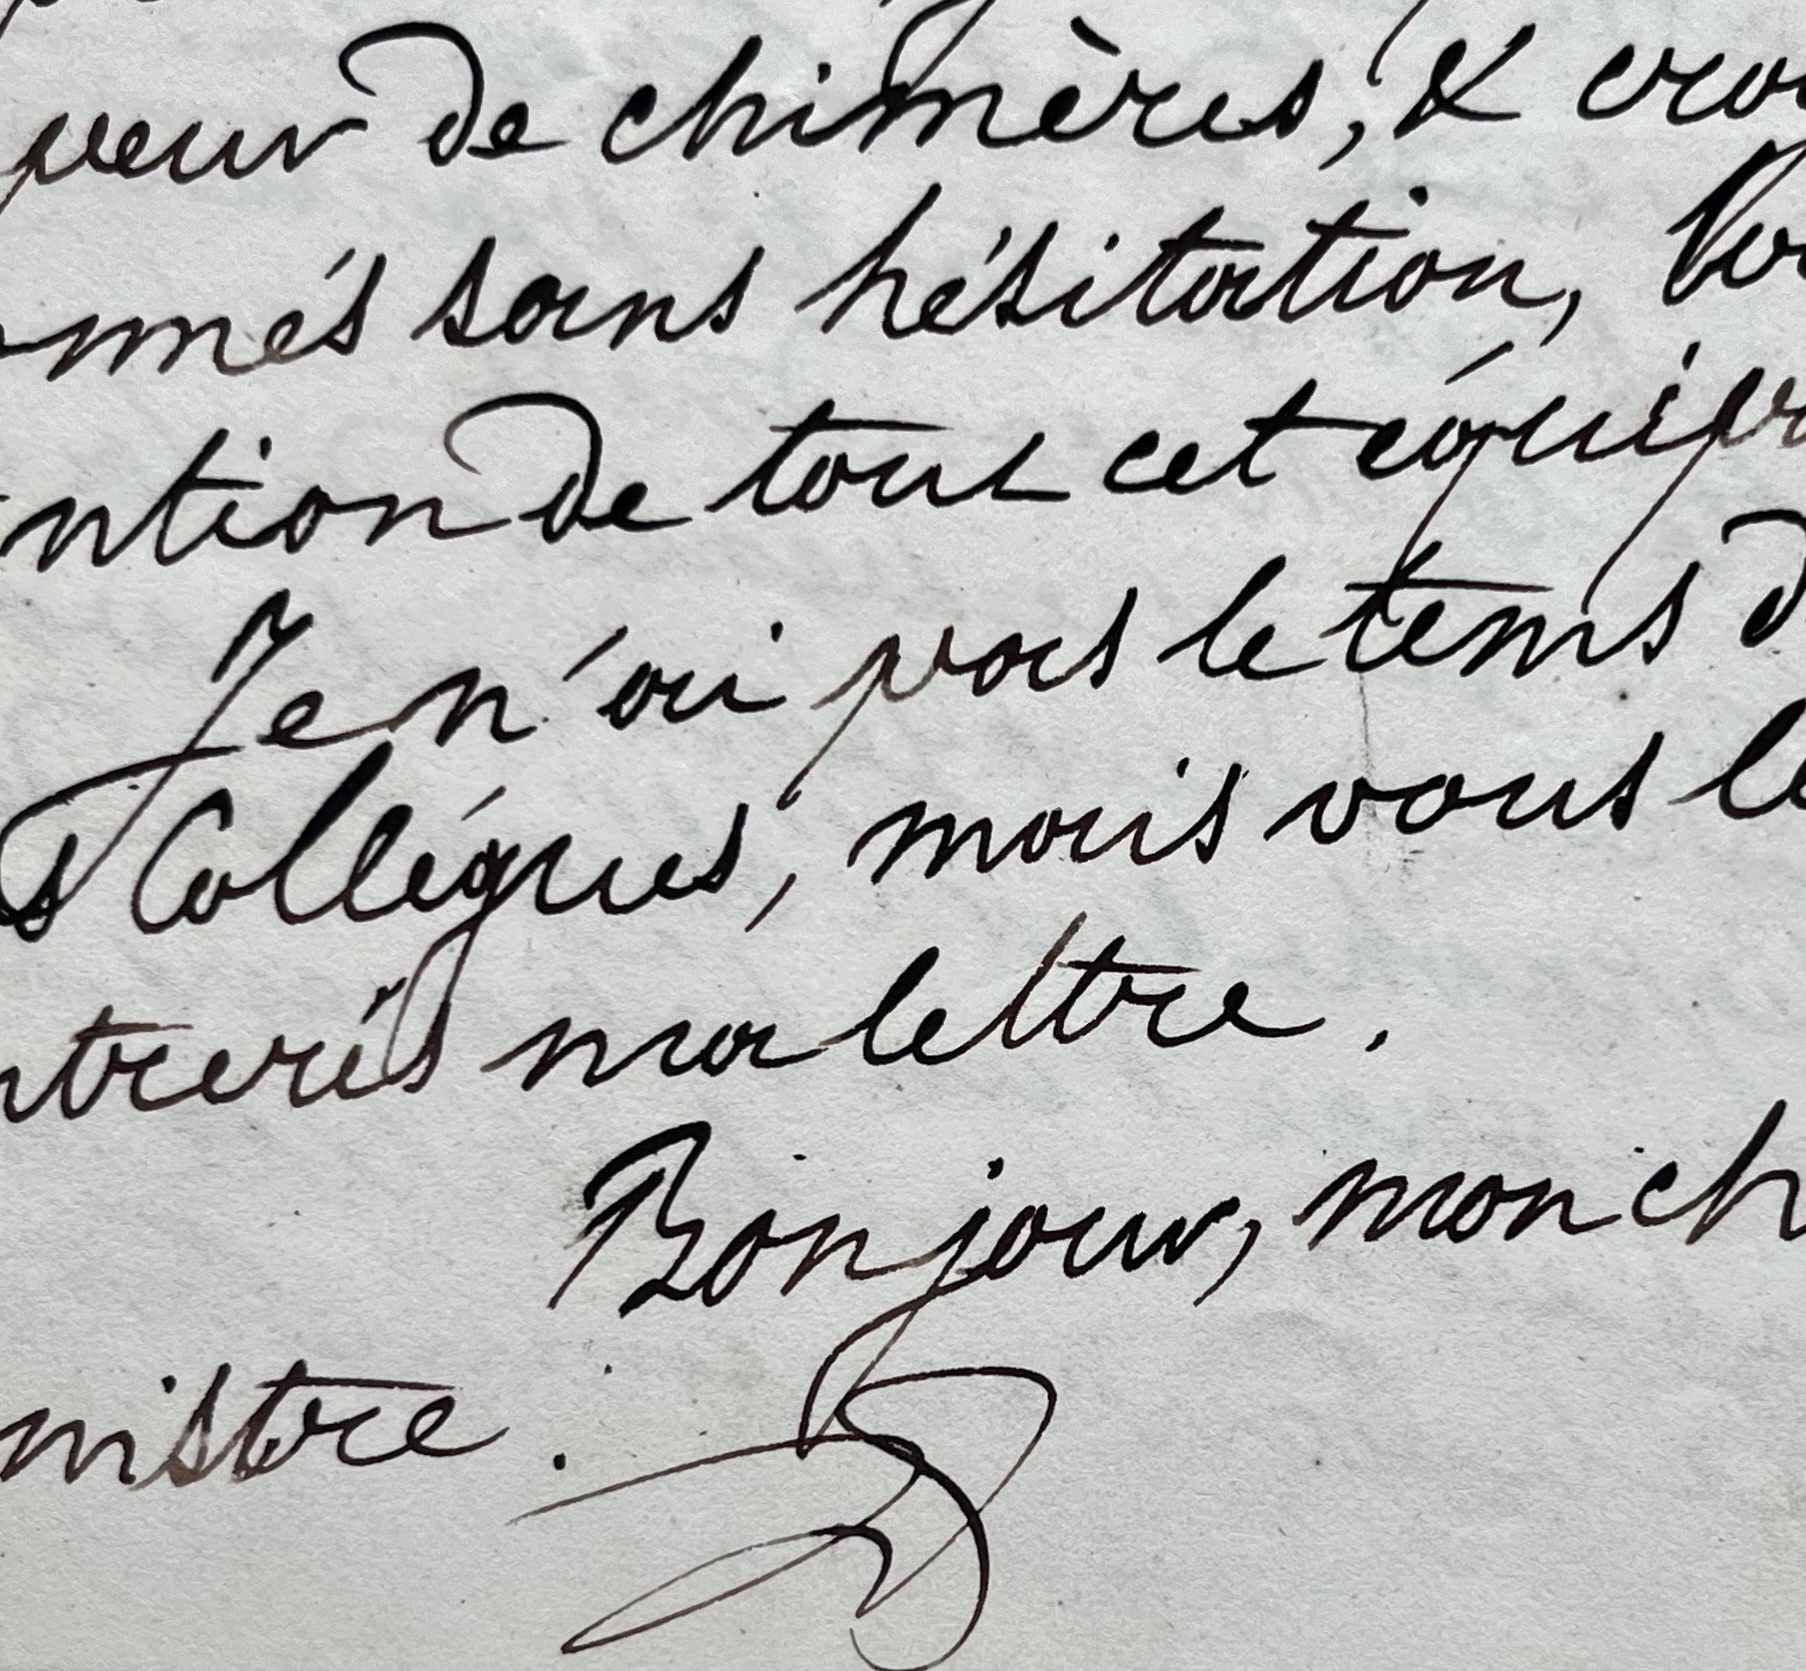 peur de chimères, & croi
nnés sans hésitation, Vo
ntion de tout cet équip
Je n'ai pas le tems d
s Collégues, mais vous le
ntrerés ma lettre.
Bonjour, mon ch
nistre.